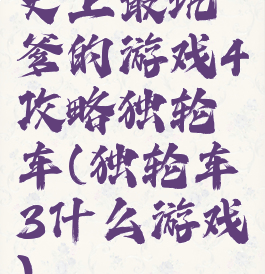 史上最坑
爹的游戏4
攻略独轮
车(独轮车
3什么游戏
)